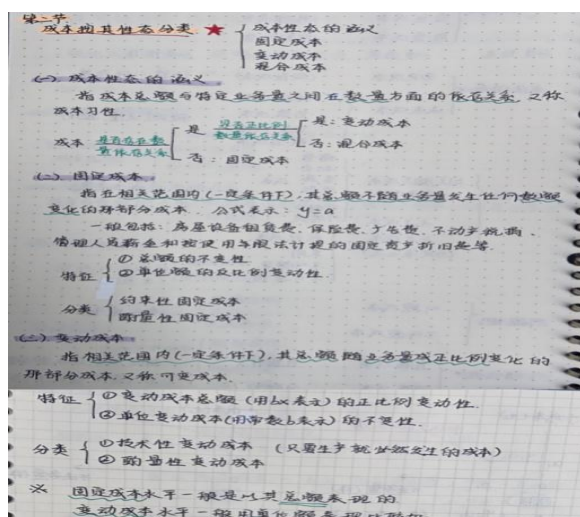 第二节
成本按其性态分类 ★ 成本性态的涵义
固定成本
变动成本
混合成本
(一) 成本性态的涵义
指成本总额与特定业务量之间在数量方面的依存关系, 又称
成本习性.
成本 是否存在数量依存关系 是 是否正比例数量依存关系 是: 变动成本
否: 混合成本
否: 固定成本
(二) 固定成本
指在相关范围内(一定条件下), 其总额不随业务量发生任何数额
变化的那部分成本. 公式表示: y=a
一般包括: 房屋设备租赁费、保险费、广告费、不动产税捐、
管理人员薪金和按使用年限法计提的固定资产折旧费等.
特征 ① 总额的不变性
② 单位额的反比例变动性.
分类 约束性固定成本
酌量性固定成本
(三) 变动成本
指相关范围内(一定条件下), 其总额随业务量成正比例变化的
那部分成本, 又称可变成本.
特征 ① 变动成本总额(用bx表示)的正比例变动性.
② 单位变动成本(用常数b表示)的不变性.
分类 ① 技术性变动成本 (只要生产就必然发生的成本)
② 酌量性变动成本
※ 固定成本水平一般是以其总额表现的
变动成本水平一般用单位额表现